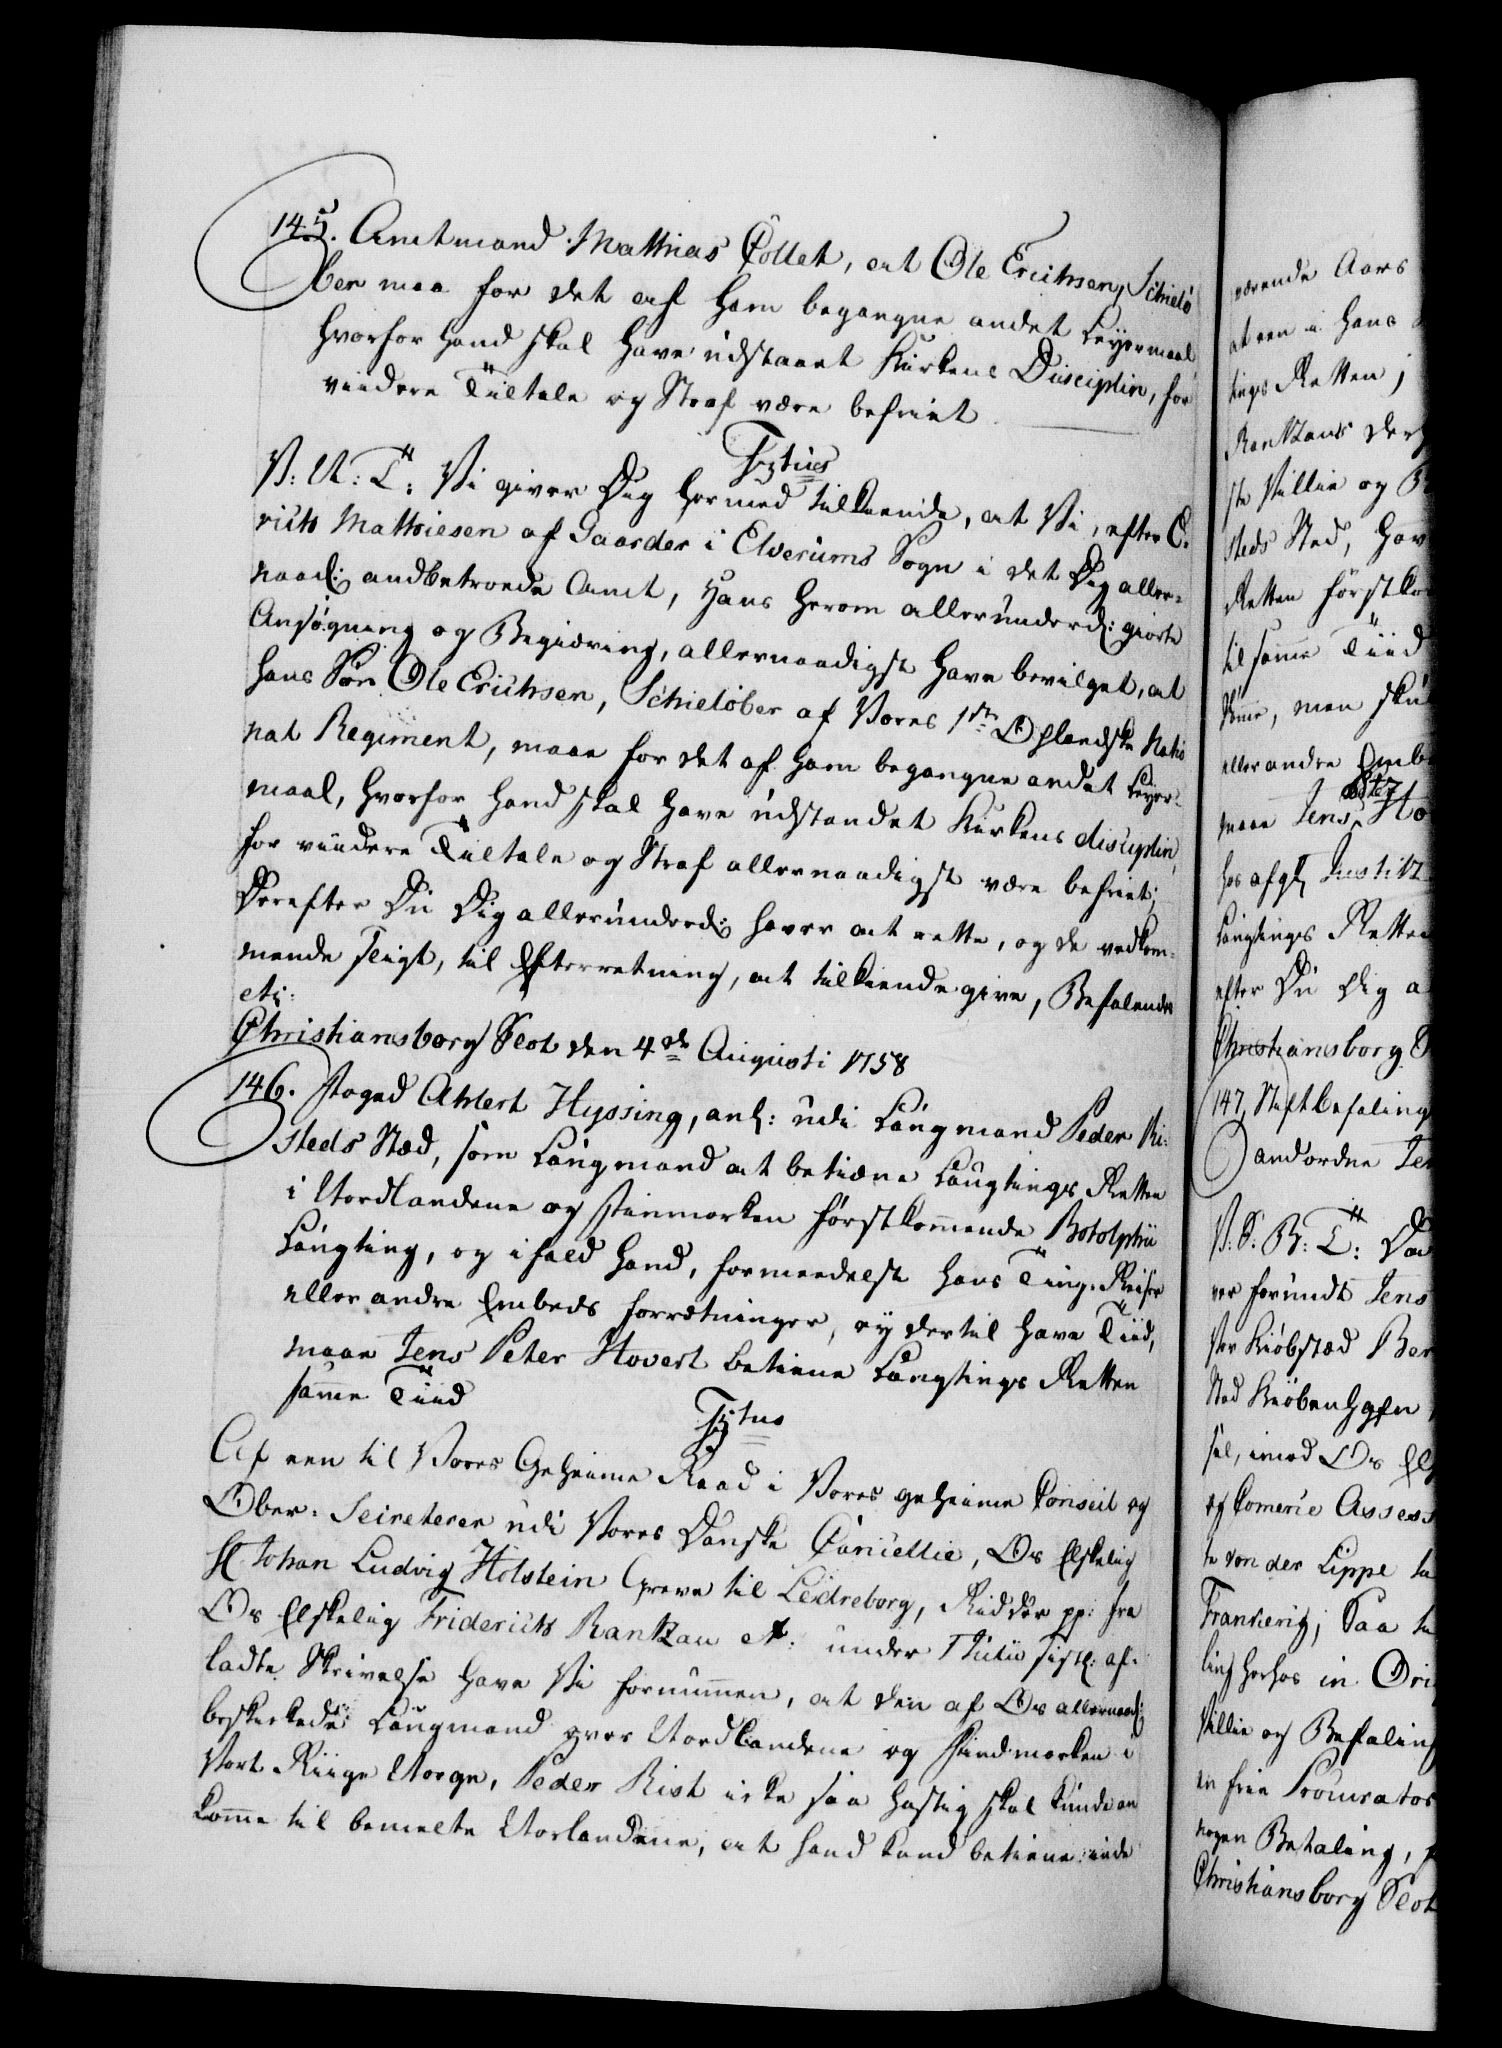 145. Amtmand Mathias Collet, at Ole Erichsen, Schielö
ber maa for det af ham begangne andet Leyermaal,
hvorfor hand skal have udstaaet Kirkens Disciplin, for
viidere Tiltale og Straf være befriet
Tytus
V: A: T: Vi giver Dig hermed tilkiende, at Vi, efter E.
rich Mathiesen af Gaarder i Elverums Sogn i det Dig aller-
naad: anbetroede Amt, hans herom allerunderd: giorte
Ansögning og Begiæring, allernaadigst have bevilget, at
hans Sön Ole Erichsen, Schielöber af Vores 1ste Oplandske Natio
nal Regiment, maae for det af ham begangne andet Leyer-
maal, hvorfor hand skal have udstandet Kirkens disciplin,
for viidere Tiltale og Straf allernaadigst være befriet;
Derefter Du Dig allerunderd: haver at rette, og de vedkom-
mende sligt, til Efterretning, at tilkiende give, Befalendes
etc:
Christiansborg Slot den 4de Augusti 1758
146. Foged Ahlert Hyssing, anl: udi Laugmand Peder Ri-
steds Stæd, som Laugmand at betiene Laugtings Retten
i Nordlandene og Finmarken förstkommende Botolphii
Laugting, og ifald hand, formedelst hans Ting-Reiser
eller andre Embeds forretninger, ey dertil have Tiid,
maae Jens Peter Hovert betiene Laugtings Retten
samme Tiid
Tytus
Af een til Vores Geheime Raad i Vores geheime Conseil og
Ober-Secreterer udi Vores Danske Cancellie, Os Elskelig
Hr Johan Ludvig Holstein Greve til Ledreborg, Ridder pp: fra
Os Elskelig Friderich Rantzau etc: under 1 Julii sistl: af-
ladte Skrivelse have Vi fornummen, at den af Os allernaad:
beskickede Laugmand over Nordlandene og Findmarken i
Vort Riige Norge, Peder Rist icke saa hastig skal kunde an
komme til bemelte Norlandene, at hand kand betiene inde
værende Aars
at een i hans
tings Retten;
Rantzaus der
ste Villie og B
steds Sted, hav
Retten förstko
til samme Tiid
komme, men sku
eller andre Embe
maae Jens Peter Ho
hos afgl. Justitz
Laugtings Retten
efter Du Dig a
Christiansborg S
147, Stiftbefaling
andordne Jen
V: S: B: T: Da
ver forundt Jens
ster Kiöbstæd Ber
Sted Kiöbenhafn
sel, imod Os El
og Comerie Assess
te von der Lippe ta
Frankerig; Saa ta
ling herhos in Ori
Villie og Befaling
en frie Procurator
nogen Betaling,
Christiansborg Slot